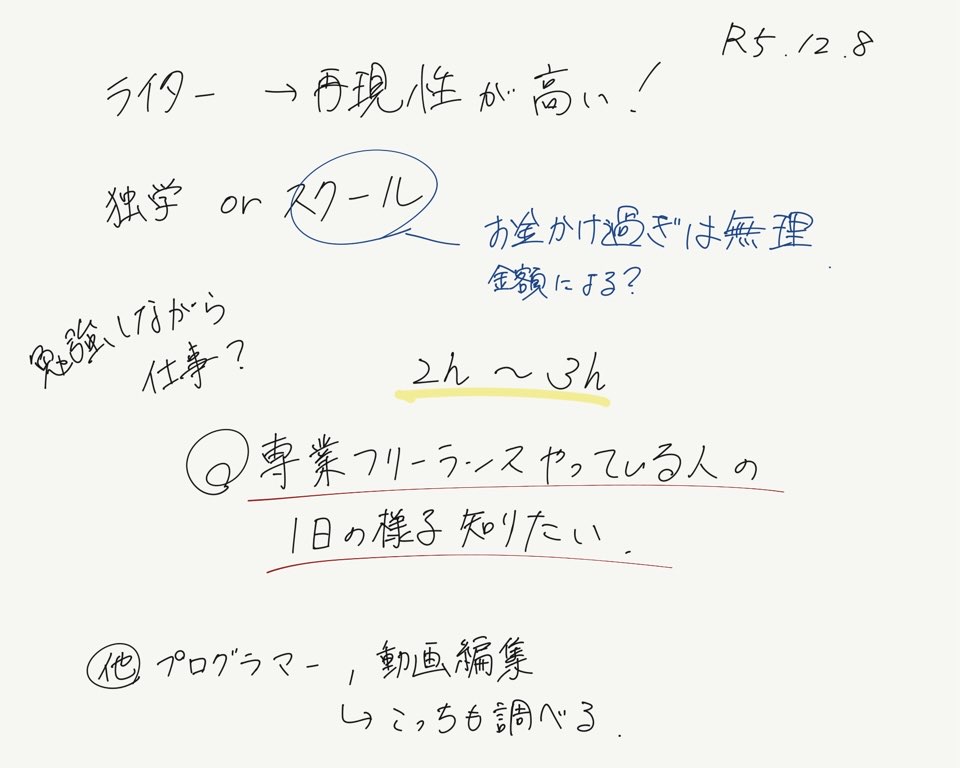 R5.12.8
ライター →再現性が高い!
独学 or スクール
お金かけ過ぎは無理.
金額による?
勉強しながら
仕事?
2h 〜 3h
◎専業フリーランスやっている人の
1日の様子知りたい.
他 プログラマー, 動画編集
↳こっちも調べる.